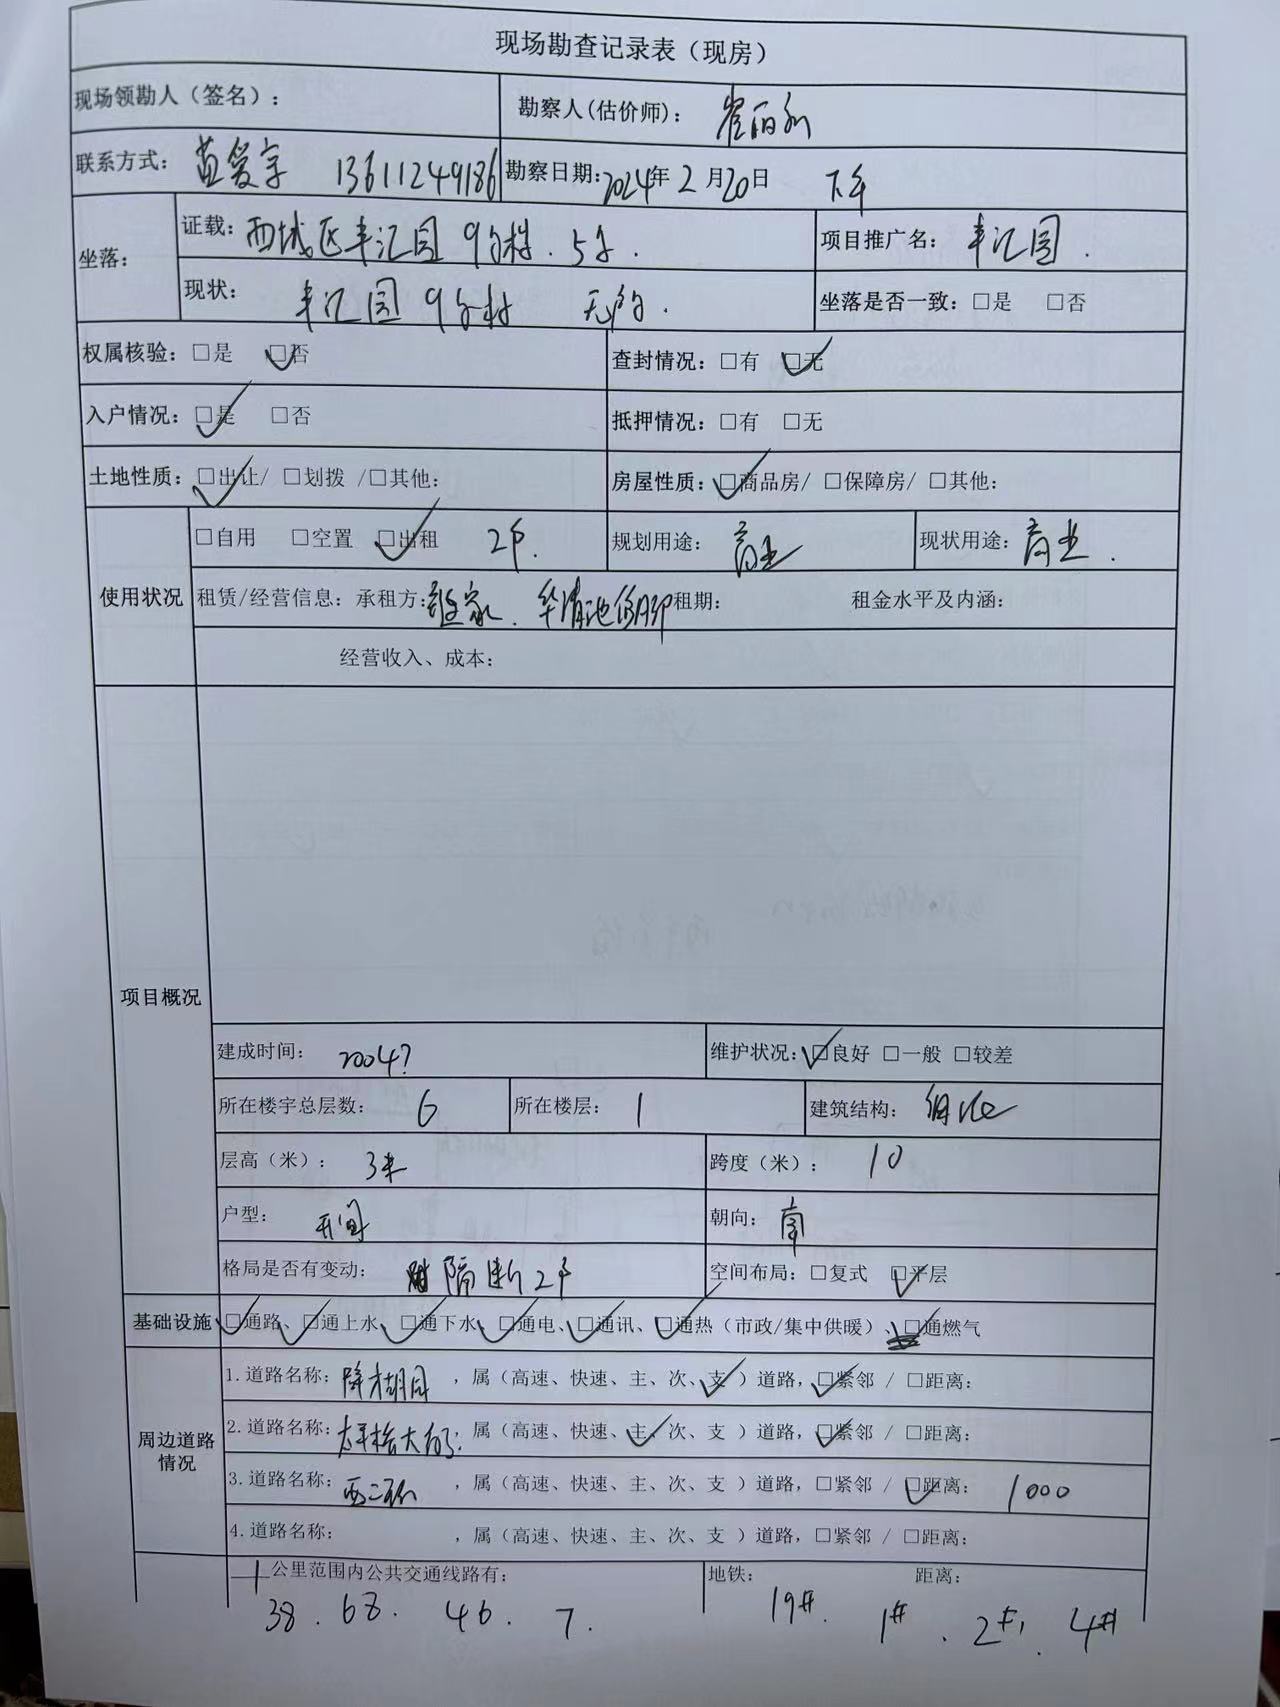 现场勘查记录表（现房）
现场领勘人（签名）： 勘察人(估价师)： 崔
联系方式： 苗爱宇 13611249186 勘察日期: 2024年 2 月 20 日 下午
坐落： 证载： 西城区丰汇园 9号楼. 5号. 项目推广名： 丰汇园.
现状： 丰汇园 9号楼 无号. 坐落是否一致：□是 □否
权属核验：□是 ☑否 查封情况：□有 ☑无
入户情况：☑是 □否 抵押情况：□有 □无
土地性质：☑出让/ □划拨 /□其他: 房屋性质：☑商品房/ □保障房/ □其他:
使用状况 □自用 □空置 ☑出租 2户. 规划用途： 商业 现状用途： 商业.
租赁/经营信息：承租方: 链家. 华清池修脚 租期： 租金水平及内涵：
经营收入、成本：
项目概况
建成时间： 2004? 维护状况：☑良好 □一般 □较差
所在楼宇总层数： 6 所在楼层： 1 建筑结构： 钢混
层高（米）： 3米 跨度（米）： 10
户型： 开间 朝向： 南
格局是否有变动： 隔断2户 空间布局：□复式 ☑平层
基础设施 ☑通路、☑通上水、☑通下水、☑通电、☑通讯、☑通热（市政/集中供暖）、□通燃气
周边道路情况 1.道路名称： ，属（高速、快速、主、次、支✓）道路，☑紧邻 / □距离：
2.道路名称： 太平桥大街 ，属（高速、快速、主✓、次、支 ）道路，☑紧邻 / □距离：
3.道路名称： 西二环 ，属（高速、快速、主、次、支 ）道路，□紧邻 / ☑距离： 1000
4.道路名称： ，属（高速、快速、主、次、支 ）道路，□紧邻 / □距离：
1 公里范围内公共交通线路有： 地铁： 距离：
38. 68. 46. 7. 19#. 1#. 2#. 4#